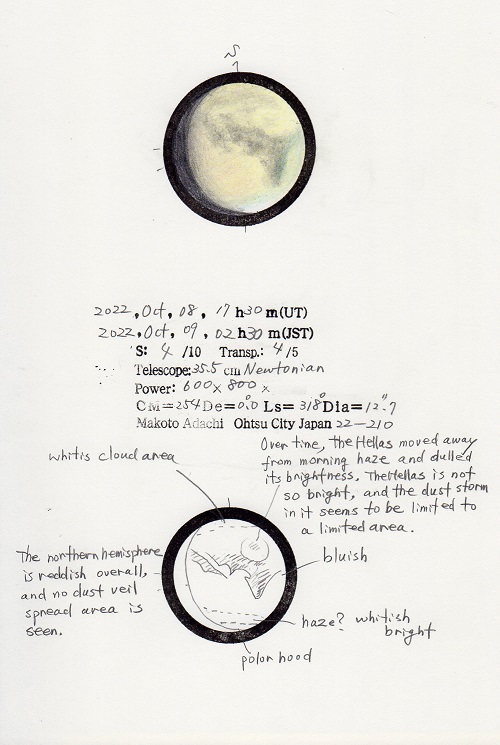 S
2022, Oct, 08, 17 h 30 m (UT)
2022, Oct, 09, 02 h 30 m (JST)
S: 4 /10 Transp.: 4 /5
Telescope: 35.5 cm Newtonian
Power: 600× 800×
CM=254 De=0.°0 Ls= 318° Dia= 12."7
Makoto Adachi Ohtsu City Japan 22-210
Over time, the Hellas moved away
from morning haze and dulled
its brightness. The Hellas is not
so bright, and the dust storm
in it seems to be limited to
a limited area.
whitis cloud area
The northern hemisphere
is reddish overall,
and no dust veil
spread area is
seen.
bluish
haze? whitish
bright
polor hood